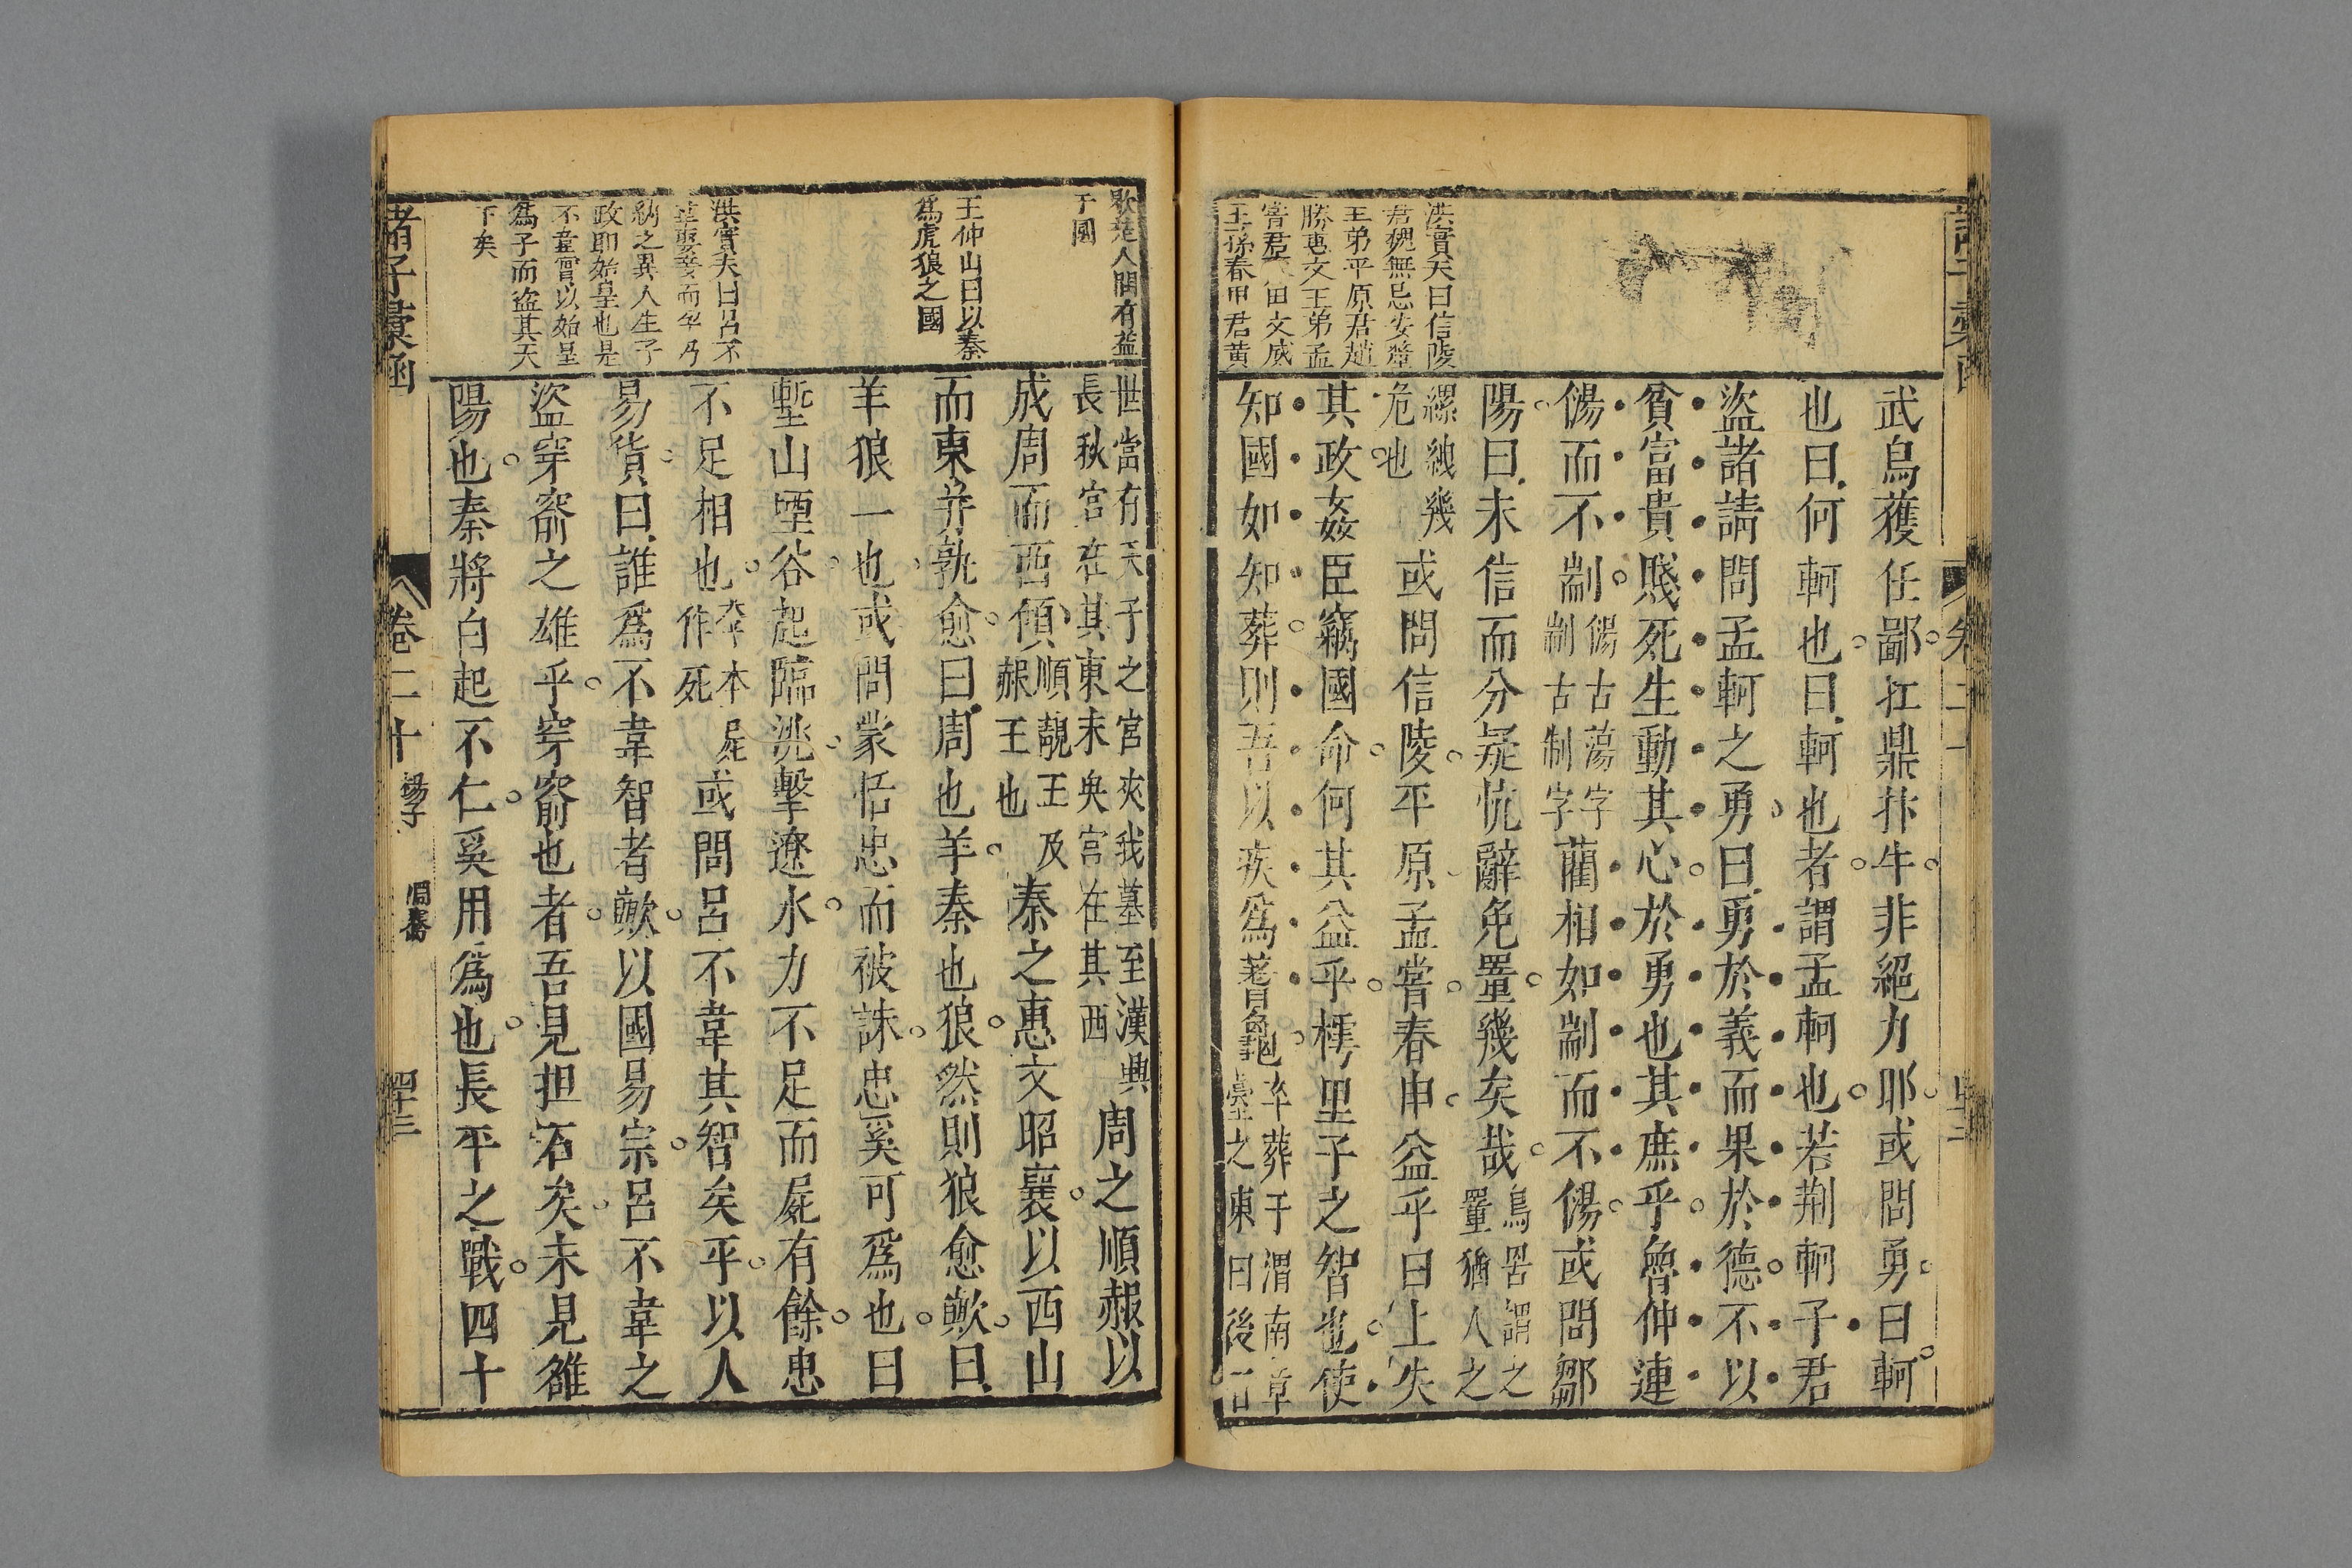 洪實夫曰信陵
君魏無忌安釐
王弟平原君趙
勝惠文王弟孟
嘗君田文威
王孫春申君黃
武烏獲任鄙扛鼎抃牛非絕力耶或問勇曰軻
也曰何軻也曰軻也者謂孟軻也若荆軻子君
盜諸請問孟軻之勇曰勇於義而果於德不以
貧富貴賤死生動其心於勇也其庶乎魯仲連
傷而不剬傷古蕩字
剬古制字藺相如剬而不傷或問鄒
陽曰未信而分疑忼辭免罿幾矣哉鳥罟謂之
罿猶人之
縲絏幾
危也或問信陵平原孟嘗春申益乎曰上失
其政姦臣竊國命何其益乎樗里子之智也使
知國如知葬則吾以疾爲蓍龜卒葬于渭南章
臺之東曰後百
歟是人間有益
于國
王仲山曰以秦
爲虎狼之國
洪實夫曰呂不
韋娶妾而孕乃
納之異人生子
政即始皇也是
不韋嘗以始皇
爲子而盜其天
下矣
世當有天子之宮夾我墓至漢興
長秋宮在其東未央宮在其西周之順赧以
成周而西傾順靚王及
赧王也秦之惠文昭襄以西山
而東并孰愈曰周也羊秦也狼然則狼愈歟曰
羊狼一也或問蒙恬忠而被誅忠奚可爲也曰
塹山堙谷起臨洮擊遼水力不足而屍有餘忠
不足相也李本屍
作死或問呂不韋其智矣乎以人
易貨曰誰爲不韋智者歟以國易宗呂不韋之
盜穿窬之雄乎穿窬也者吾見担石矣未見雒
陽也秦將白起不仁奚用爲也長平之戰四十
諸子彙函
卷二十
揚子
淵騫
四十三